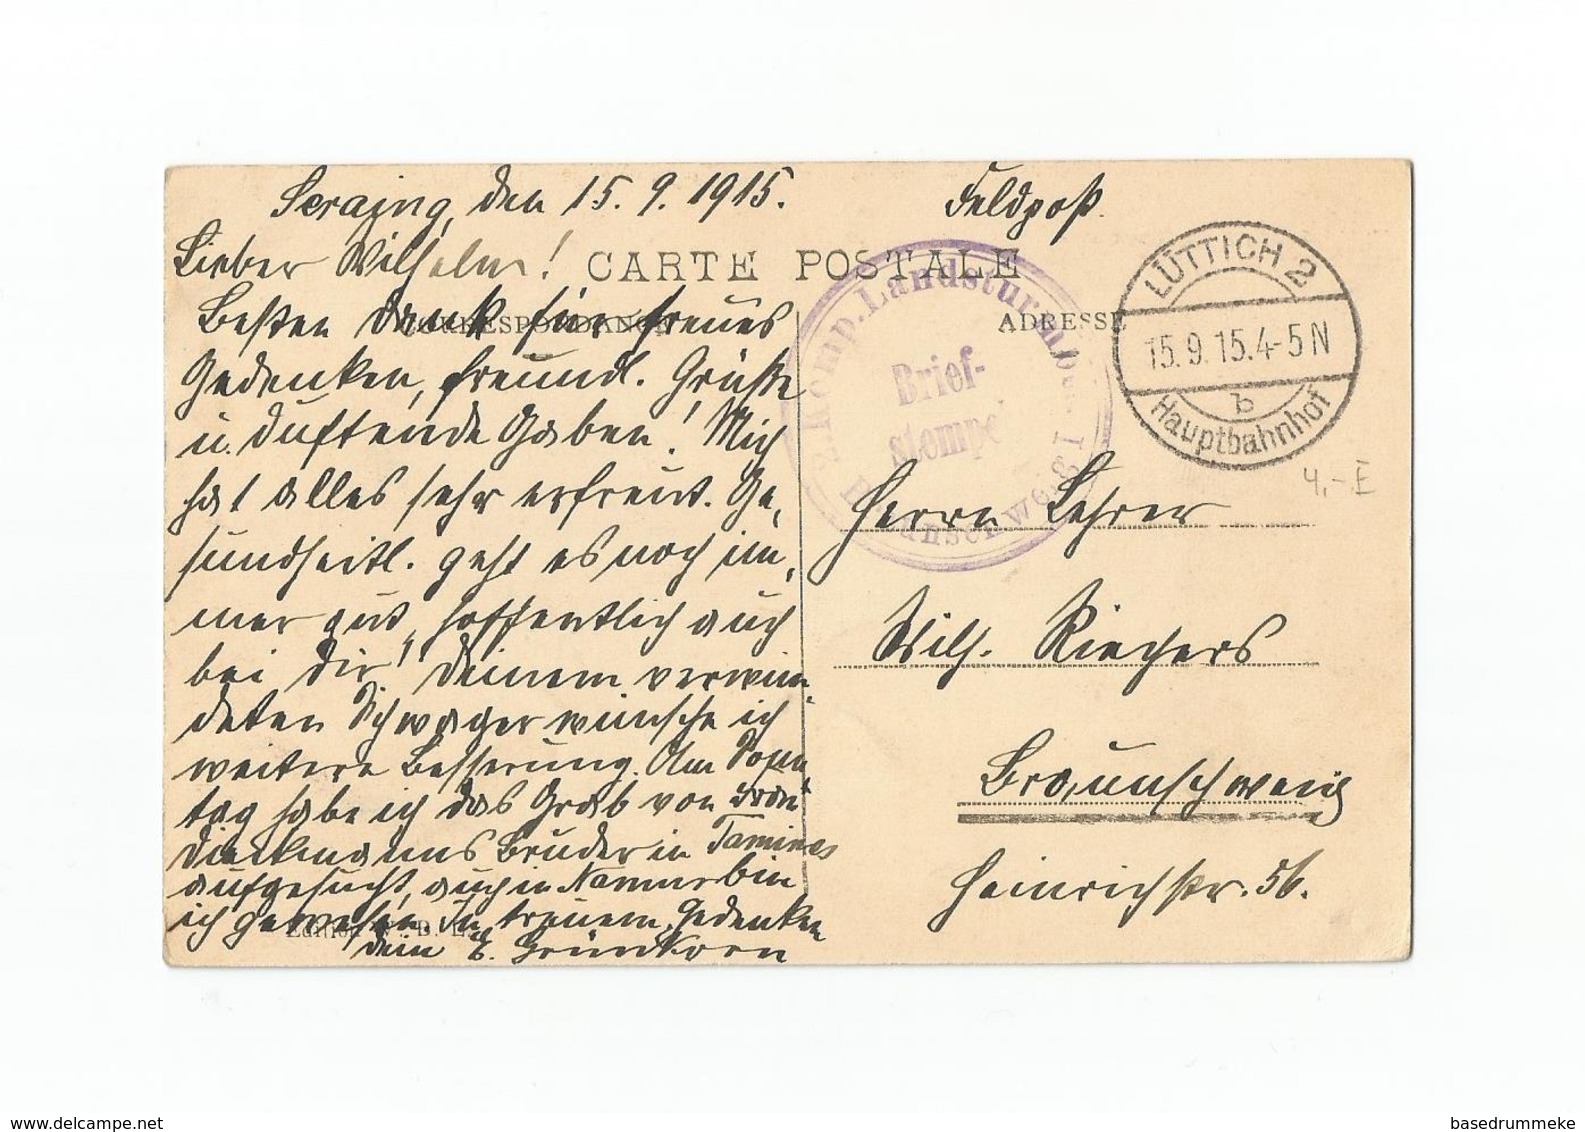 Seraing, den 15. 9. 1915.
Lieber Wilhelm!
Besten Dank für treues
Gedenken, freundl. Grüße
u. duftende Gaben! Mich
hat alles sehr erfreut. Ge-
sundheitl. geht es noch im-
mer gut, hoffentlich auch
bei Dir! Deinem verwun-
deten Schwager wünsche ich
weitere Besserung. Am Sonn-
tag habe ich das Grab von
Dieckmanns Bruder in Tamines
aufgesucht, auch in Namur bin
ich gewesen. In treuem Gedenken
Dein E. Grünkorn
CARTE POSTALE
CORRESPONDANCE
ADRESSE
Edition
Feldpost.
2. Komp. Landsturmbat. I
Braunschweig
Brief-
stempel
LÜTTICH 2
15.9.15.4-5N
b
Hauptbahnhof
4,-E
Herrn Lehrer
Wilh. Riechers
Braunschweig
Heinrichstr. 56.
www.delcampe.net
basedrummeke